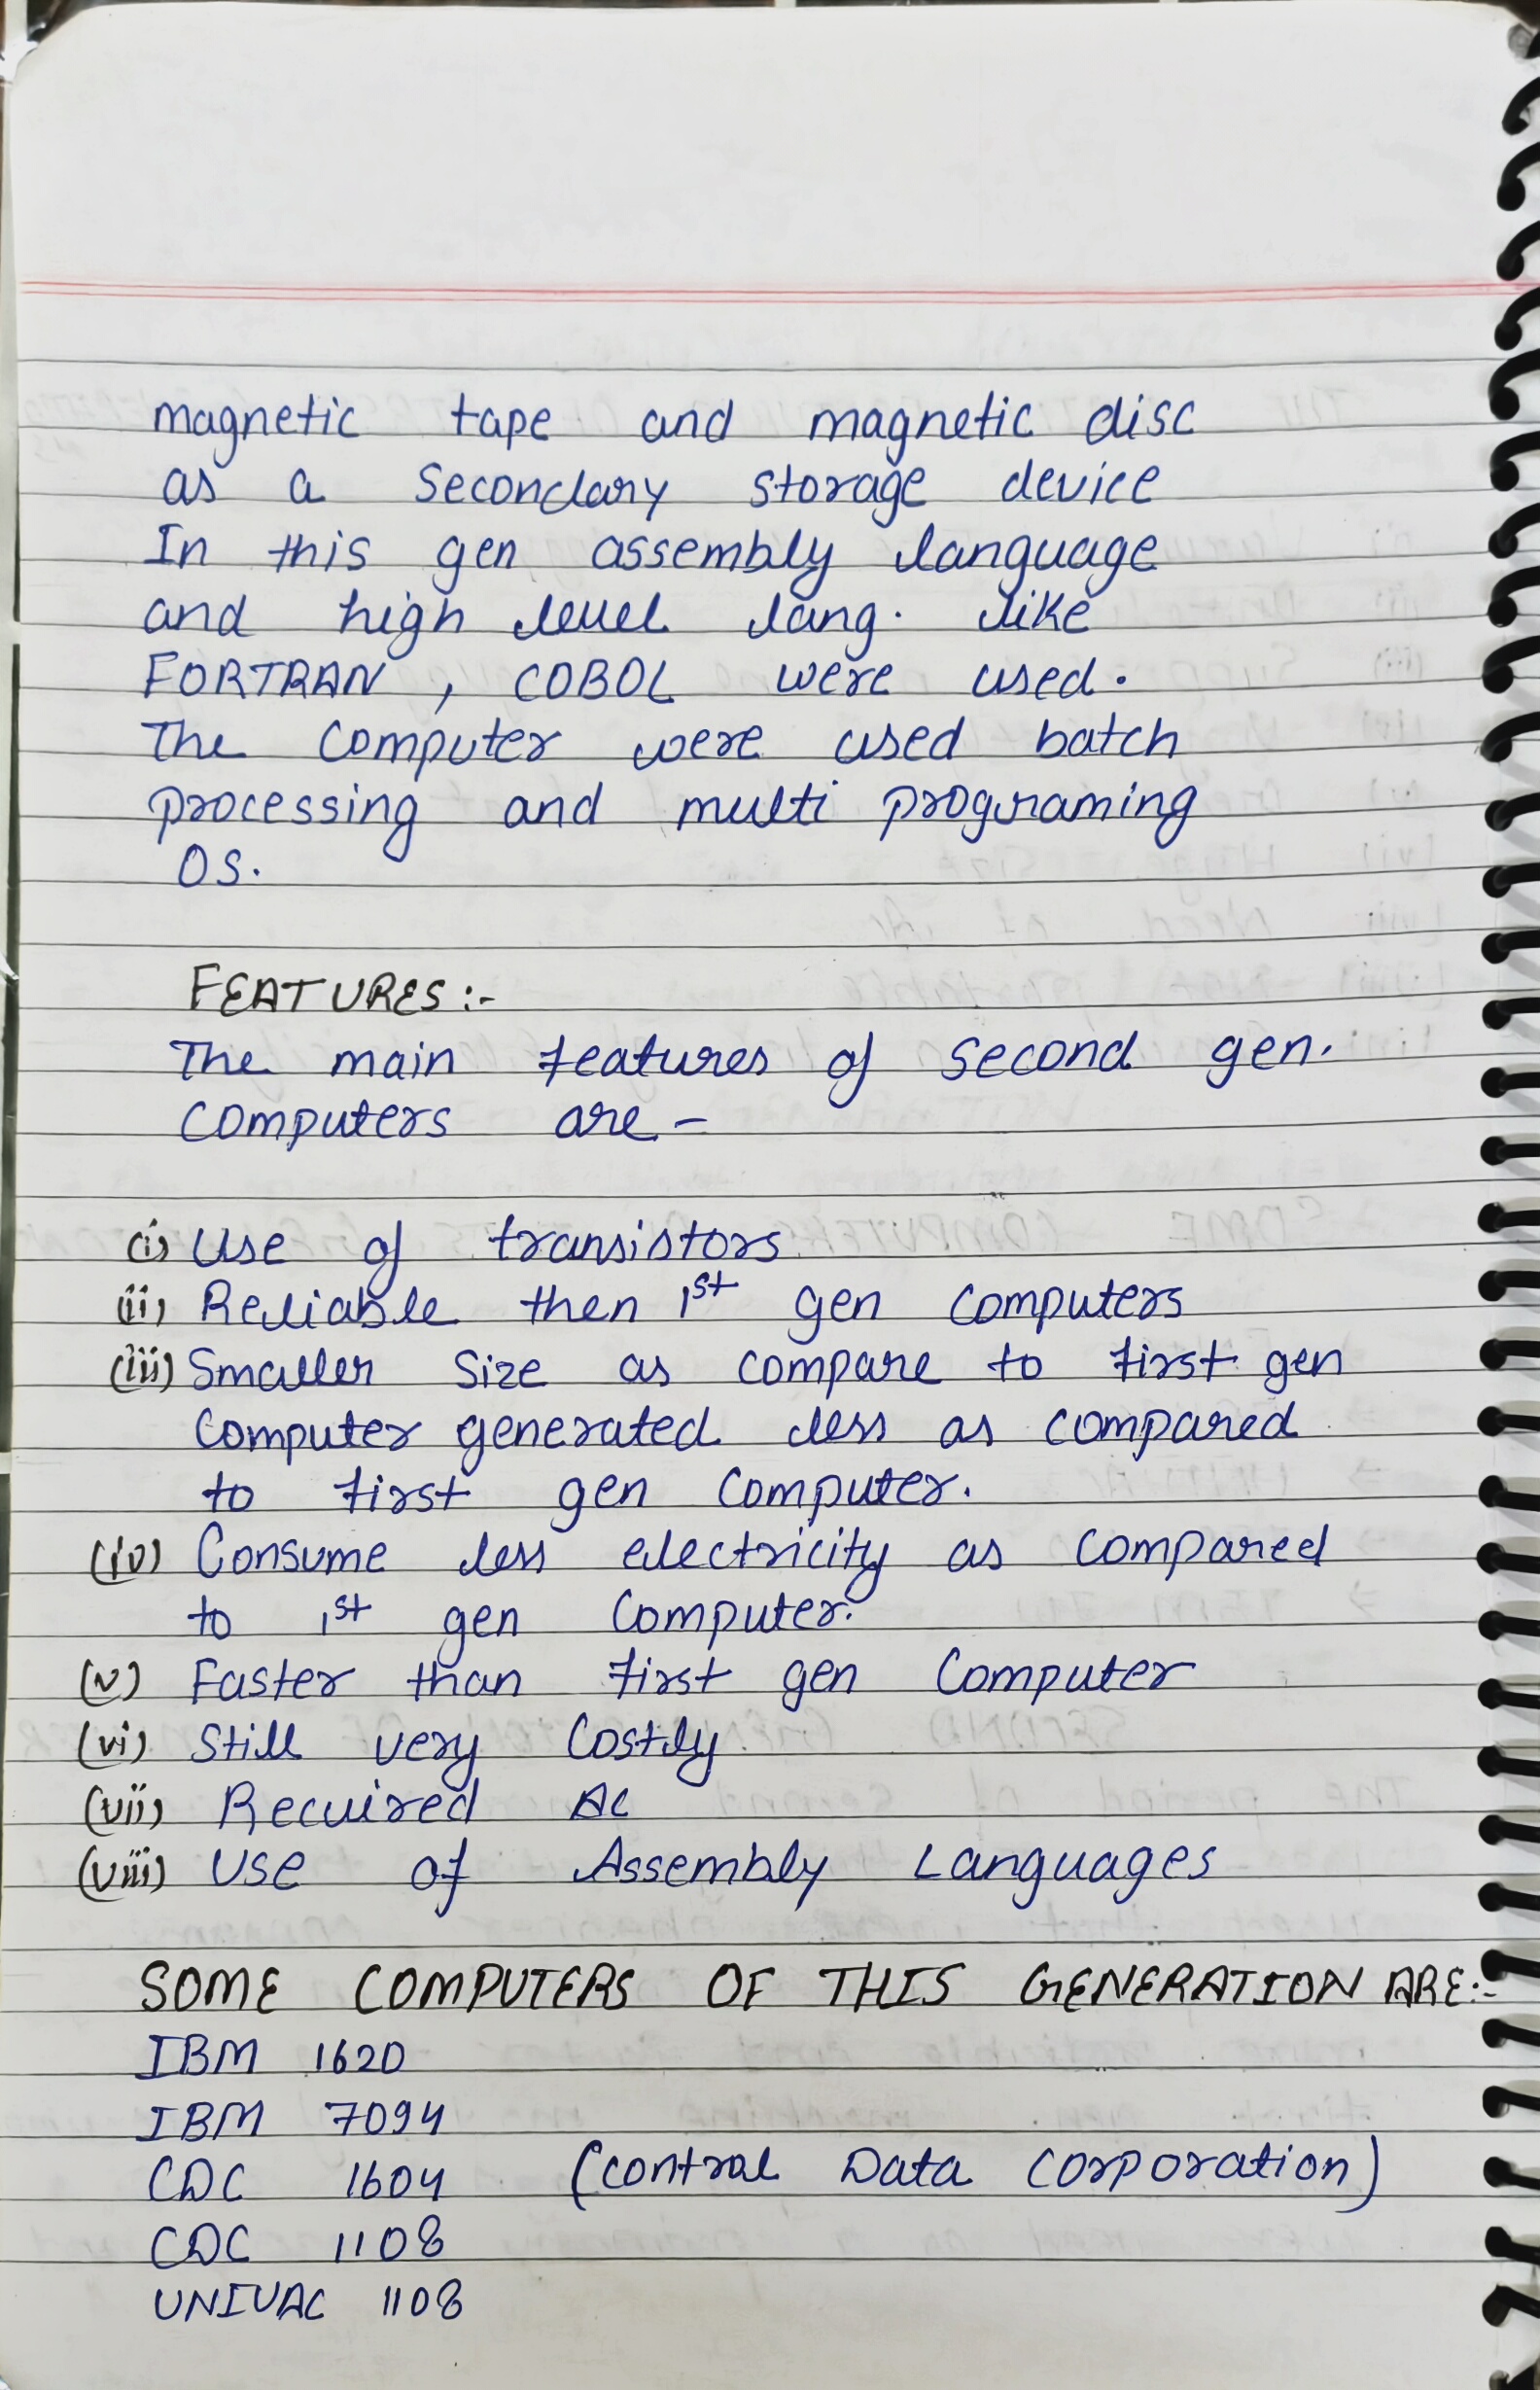 magnetic tape and magnetic disc
as a Secondary storage device
In this gen assembly language
and high level lang. like
FORTRAN , COBOL were used.
The Computer were used batch
processing and multi programing
OS.
FEATURES :-
The main features of Second gen.
Computers are -
(i) Use of transistors
(ii) Reliable then 1st gen Computers
(iii) Smaller Size as compare to first gen
Computer generated less as compared
to first gen Computer.
(iv) Consume less electricity as compared
to 1st gen Computer.
(v) Faster than first gen Computer
(vi) Still very Costly
(vii) Recuired AC
(viii) Use of Assembly Languages
SOME COMPUTERS OF THIS GENERATION ARE:-
IBM 1620
IBM 7094
CDC 1604 (Control Data Corporation)
CDC 1108
UNIVAC 1108